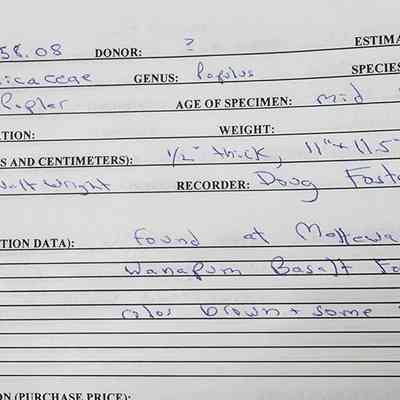 58.08 DONOR: ? ESTIMA
icaceae GENUS: Populus SPECIES
Poplar AGE OF SPECIMEN: mid
ATION: WEIGHT:
S AND CENTIMETERS): 1/2" thick, 11" x 11.5
Walt Wright RECORDER: Doug Foste
TION DATA): found at Mattawa
Wanapum Basalt Fo
color brown + some
ON (PURCHASE PRICE):